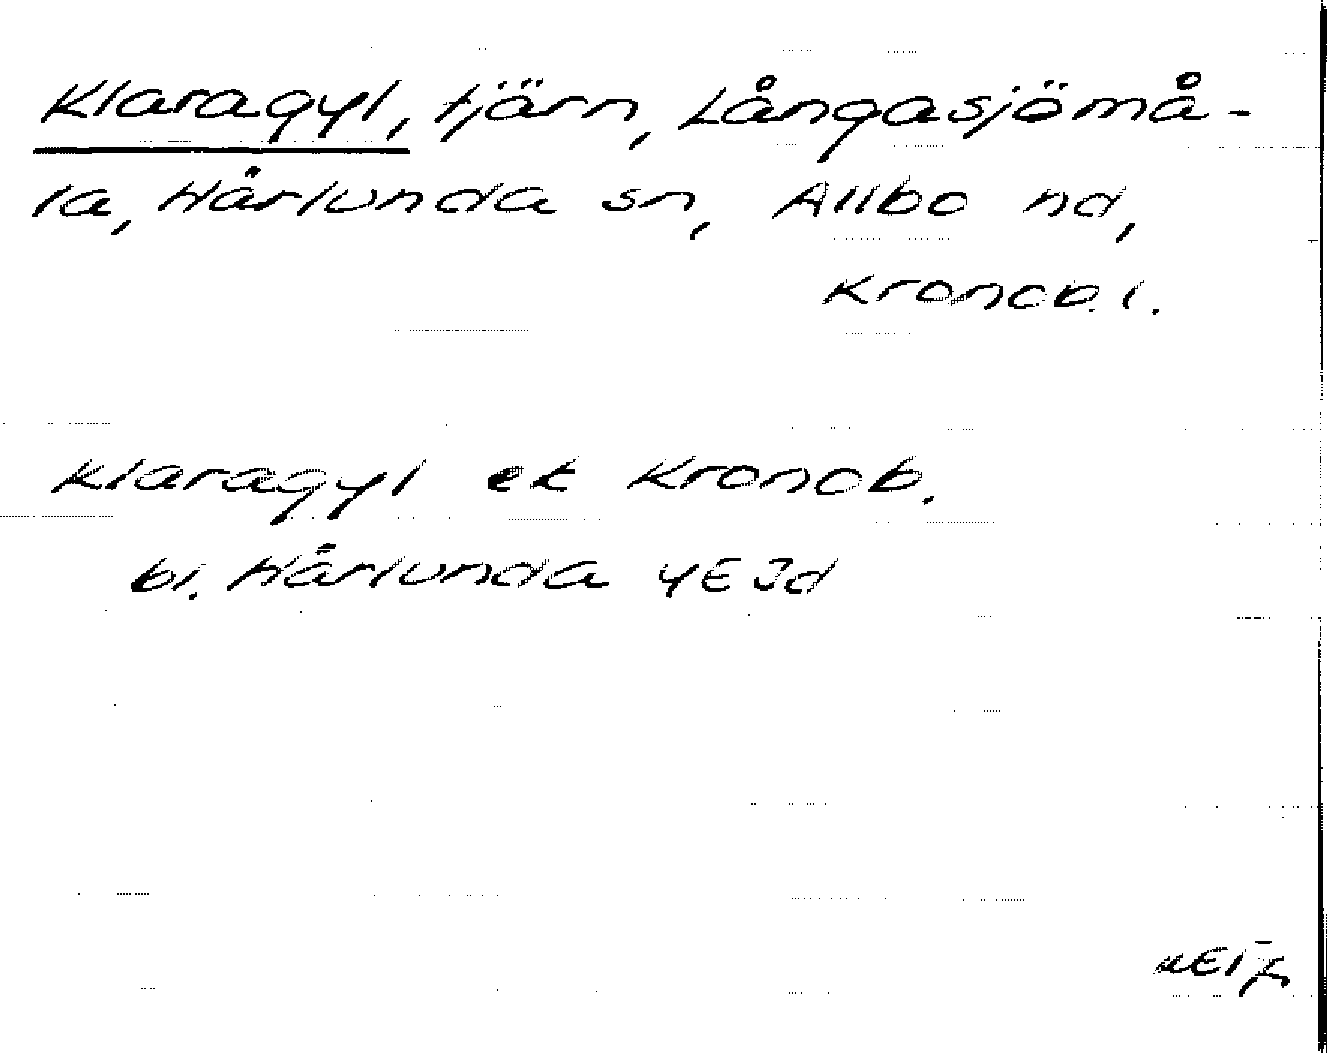 Klaragyl, tjärn, Långasjömå-
la, Härlunda sn, Allbo hd,
Kronob. l.
Klaragyl ek Kronob.
bl. Härlunda 4E Jd